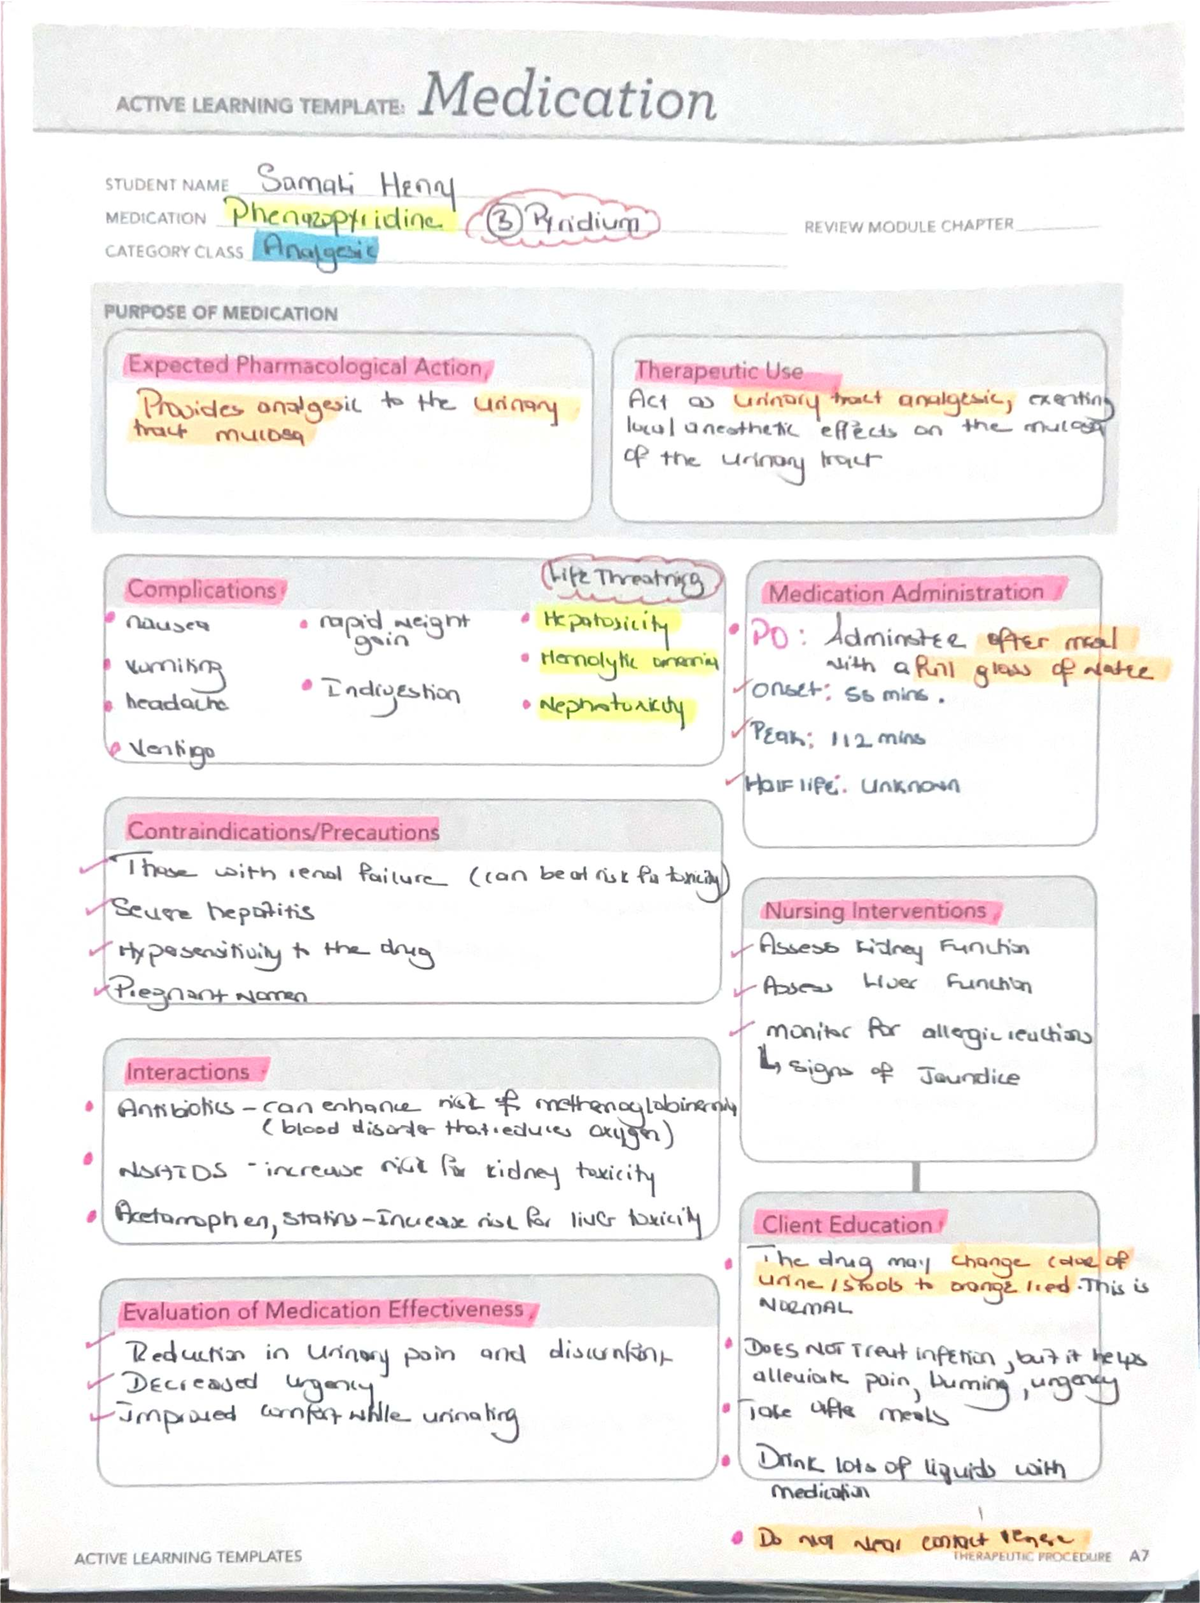 ACTIVE LEARNING TEMPLATE: Medication
STUDENT NAME Samali Henry
MEDICATION Phenazopyridine ③ Pyridium
REVIEW MODULE CHAPTER
CATEGORY CLASS Analgesic
PURPOSE OF MEDICATION
Expected Pharmacological Action
Provides analgesic to the urinary
tract mucosa
Therapeutic Use
Act as urinary tract analgesic, exerting
local anesthetic effects on the mucosa
of the urinary tract
Complications
nausea
vomiting
headache
vertigo
rapid weight
gain
Indigestion
Life Threatning
Hepatoxicity
Hemolytic anemia
Nephrotoxicity
Medication Administration
PO: Adminster after meal
with a full glass of water
Onset: 55 mins.
Peak: 112 mins
Half life: Unknown
Contraindications/Precautions
Those with renal failure (can be at risk for toxicity)
Severe hepatitis
Hypersensitivity to the drug
Pregnant women
Nursing Interventions
Assess Kidney Function
Assess Liver Function
monitor for allergic reactions
↳ signs of Jaundice
Interactions
Antibiotics - can enhance risk of methenoglobinemia
(blood disorder that reduces oxygen)
NSAIDS - increase risk for kidney toxicity
Acetamophen, statins - Increase risk for liver toxicity
Evaluation of Medication Effectiveness
Reduction in urinary pain and discomfort
Decreased urgency
Improved comfort while urinating
Client Education
The drug may change color of
urine/stools to orange/red. This is
NORMAL
DOES NOT Treat infetion, but it helps
alleviate pain, burning, urgency
Take after meals
Drink lots of liquids with
medication
Do not wear contact lense
ACTIVE LEARNING TEMPLATES
THERAPEUTIC PROCEDURE A7